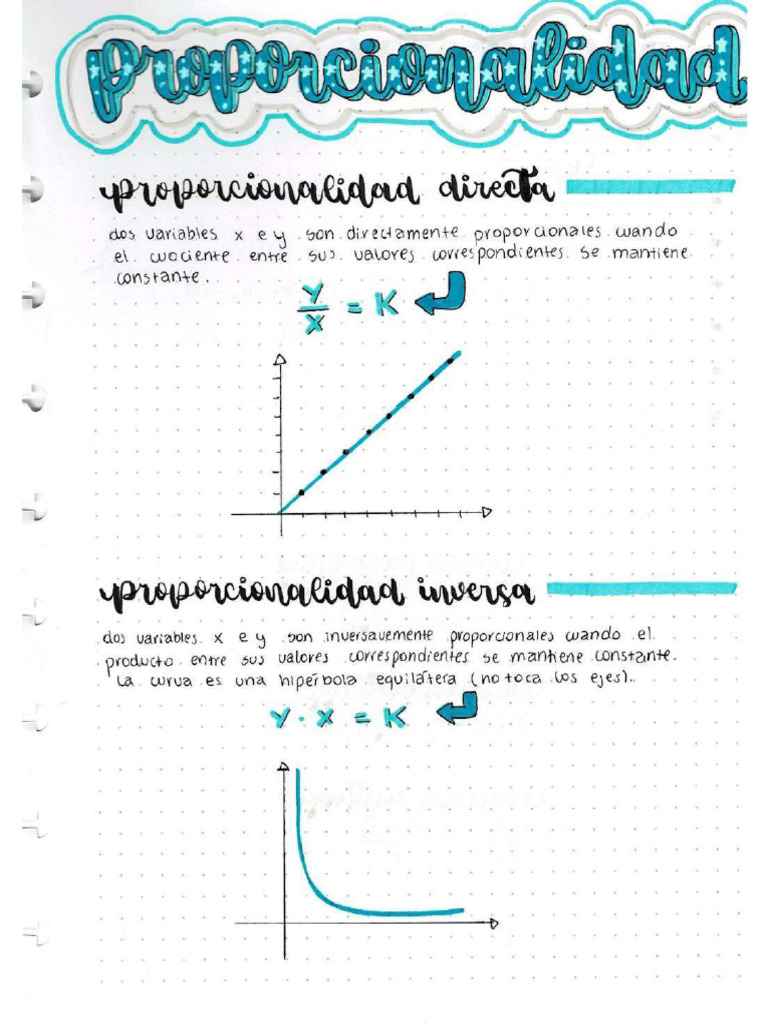 proporcionalidad
proporcionalidad directa
dos variables x e y son directamente proporcionales cuando
el cociente entre sus valores correspondientes se mantiene
constante.
Y/X = K
proporcionalidad inversa
dos variables x e y son inversavemente proporcionales cuando el
producto entre sus valores correspondientes se mantiene constante.
La curva es una hipérbola equilátera (no toca los ejes).
Y · X = K